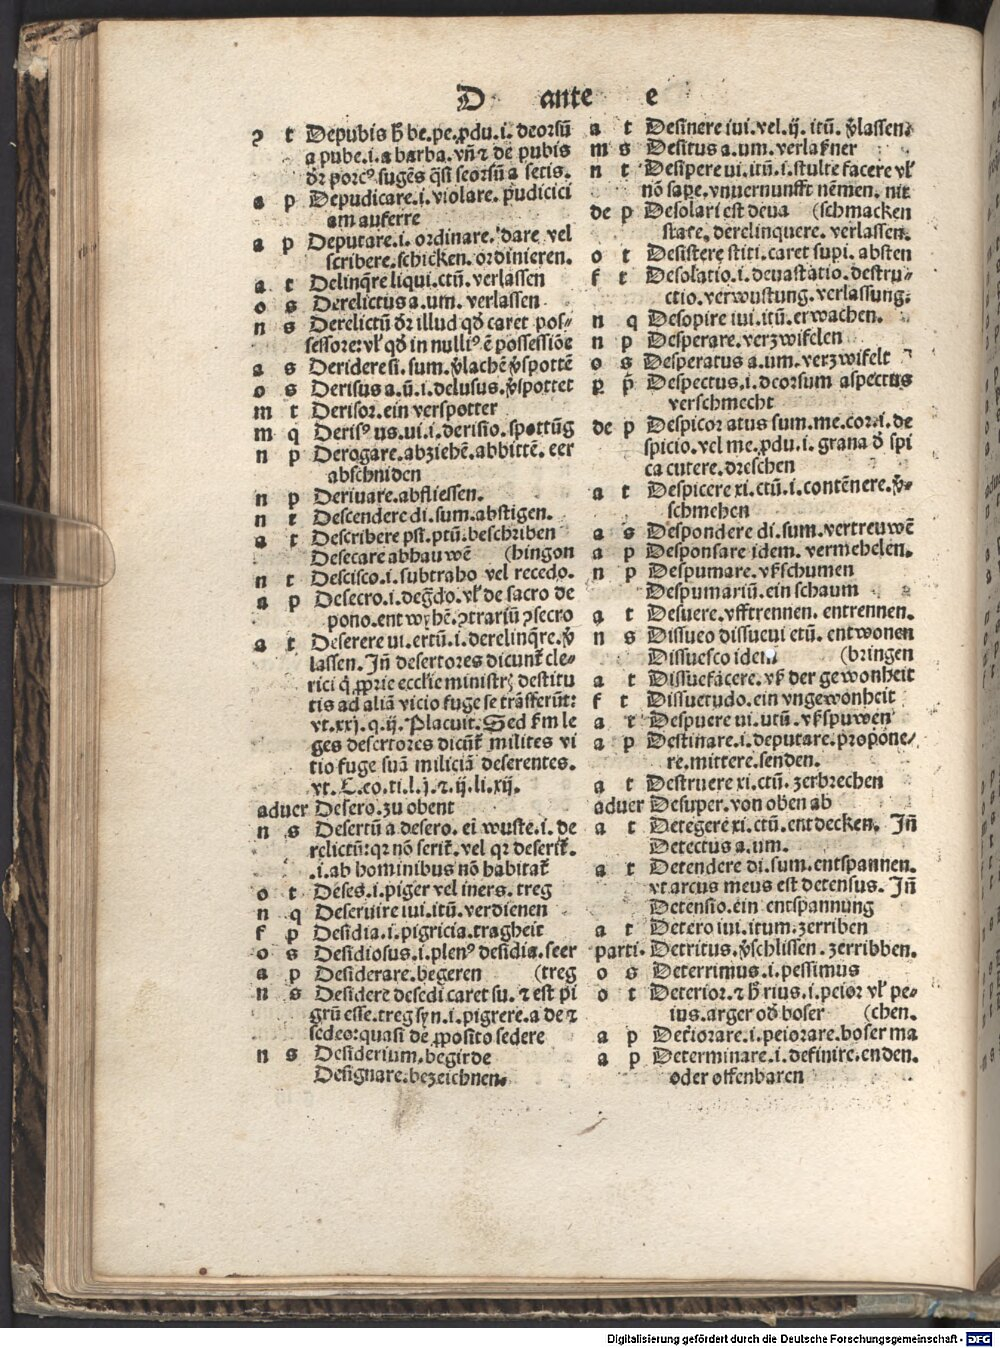 D ante e
ꝯ t Depubis h̄ be.pe.ꝓdu.i. deorsū
a pube.i.a barba.vn̄ ⁊ de pubis
dr̄ porcꝰ.sugēs q̄si seorsū a setis.
a p Depudicare.i.violare.pudicici
am auferre
a p Deputare.i.ordinare.dare vel
scribere.schicken.ordinieren.
a t Delinq̄re liqui.ctū.verlassen
o s Derelictus a.um.verlassen
n s Derelictū dr̄ illud qd̄ caret pos⸗
sessore:vl̓ qd̄ in nulliꝰ ē possessiōe
a s Deridere si.sum.v̄lachē v̄spottē
o s Derisus a.ū.i.delusus.v̄spottet
m t Derisor.ein verspotter
m q Derisꝰ us.ui.i.derisio.spottūg
n p Derogare.abziehē.abbittē.eer
abschniden
n p Deriuare.abfliessen.
n t Descendere di.sum.abstigen.
a t Describere psi.ptū.beschriben
Desecare abhauwē (hingon
n t Descisco.i.subtraho vel recedo.
a p Desecro.i.deḡdo.vl̓ de sacro de
pono.entwyhē.ꝯtrariū ꝯsecro
a t Deserere ui.ertū.i.derelinq̄re.v̄
lassen. Jn̄ desertores dicunt̄ cle⸗
rici q̄ ꝓprie ecclie ministrꝫ destitu
tis ad aliā vicio fuge se trāsferūt:
vt.xxj.q.ij. Placuit. Sed s̄m le
ges desertores dicūt̄ milites vi
tio fuge suā miliciā deserentes.
vt. C.eo.ti.l.j.⁊.ij.li.xij.
aduer Desero.zu obent
n s Desertū a desero.ei wuste.i.de
relictū:qr nō serit̄.vel qr deserit̄.
.i.ab hominibus nō habitat̄
o t Deses.i.piger vel iners.treg
n q Deseruire iui.itū.verdienen
f p Desidia.i.pigricia.tragheit
o s Desidiosus.i.plenꝰ desidia.seer
a p Desiderare.begeren (treg
n s Desidere desedi caret su.⁊ est pi
grū esse.treg syn.i.pigrere.a de ⁊
sedeo:quasi de ꝓposito sedere
n s Desiderium.begirde
Designare.bezeichnen.
a t Desinere iui.vel.ij.itū.v̄lassen.
m s Desitus a.um.verlaßner
n t Desipere ui.itū.i.stulte facere vl̓
nō sape.vnuernunfft nēmen.nit
de p Desolari est deua (schmacken
stare.derelinquere.verlassen.
o t Desistere stiti.caret supi.absten
f t Desolatio.i.deuastatio.destru⸗
ctio.verwustung.verlassung.
n q Desopire iui.itū.erwachen.
n p Desperare.verzwifelen
o s Desperatus a.um.verzwifelt
p̱ p Despectus.i.deorsum aspectus
verschmecht
de p Despicor atus sum.me.cor.i.de
spicio.vel me.ꝓdu.i.grana d̄ spi
ca cutere.dreschen
a t Despicere xi.ctū.i.contēnere.v̄⸗
schmehen
a s Despondere di.sum.vertreuwē
a p Desponsare idem.vermehelen.
n p Despumare.vßschumen
Despumariū.ein schaum
a t Desuere.vfftrennen.entrennen.
n s Dissueo dissueui etū.entwonen
Dissuesco idem (bringen
a t Dissuefacere.vß der gewonheit
f t Dissuetudo.ein vngewonheit
a t Despuere ui.utū.vßspuwen
a p Destinare.i.deputare.propone⸗
re.mittere.senden.
a t Destruere xi.ctū.zerbrechen
aduer Desuper.von oben ab
a t Detegere xi.ctū.entdecken. Jn̄
Detectus a.um.
a t Detendere di.sum.entspannen.
vt arcus meus est detensus. Jn̄
Detensio.ein entspannung
a t Detero iui.itum.zerriben
parti. Detritus.v̄schlissen.zerribben.
o s Deterrimus.i.pessimus
o t Deterior.⁊ h̄ rius.i.peior vl̓ pe⸗
ius.arger od̄ boser (chen.
a p Det̄iorare.i.peiorare.boser ma
a p Determinare.i.definire.enden.
oder offenbaren
Digitalisierung gefördert durch die Deutsche Forschungsgemeinschaft - DFG